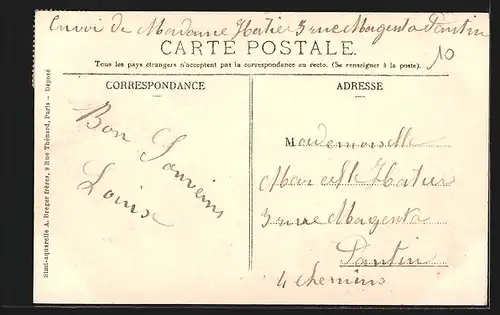 Envoi de Madame Hatier 3 rue Magenta Pantin
CARTE POSTALE.
10
Tous les pays étrangers n'acceptent pas la correspondance au recto. (Se renseigner à la poste).
CORRESPONDANCE
ADRESSE
Bon Souvenir
Louise
Mademoiselle
Hatier
3 rue Magenta
Pantin
4 chemins
Simi-aquarelle A. Breger frères, 9 Rue Thénard, Paris - Déposé